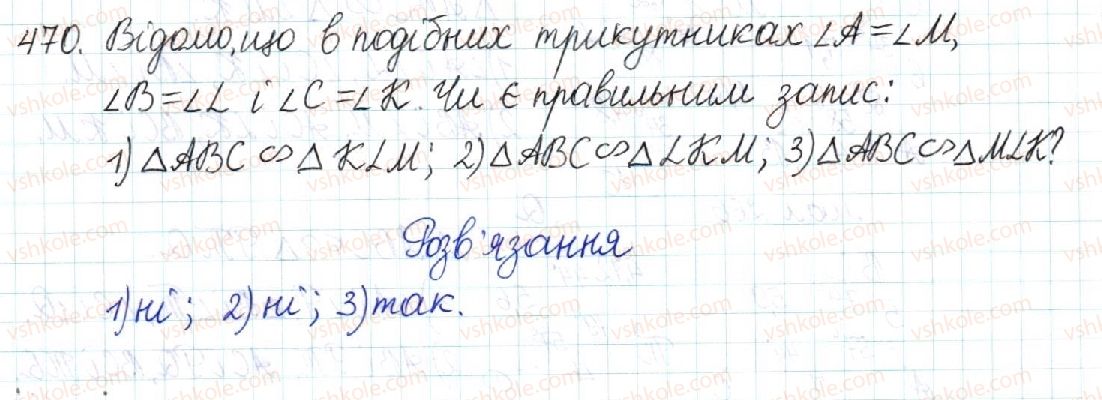 470. Відомо, що в подібних трикутниках ∠A=∠M,
∠B=∠L і ∠C=∠K. Чи є правильним запис:
1) △ABC ∽ △KLM; 2) △ABC ∽ △LKM; 3) △ABC ∽ △MLK?
Розв'язання
1) ні; 2) ні; 3) так.